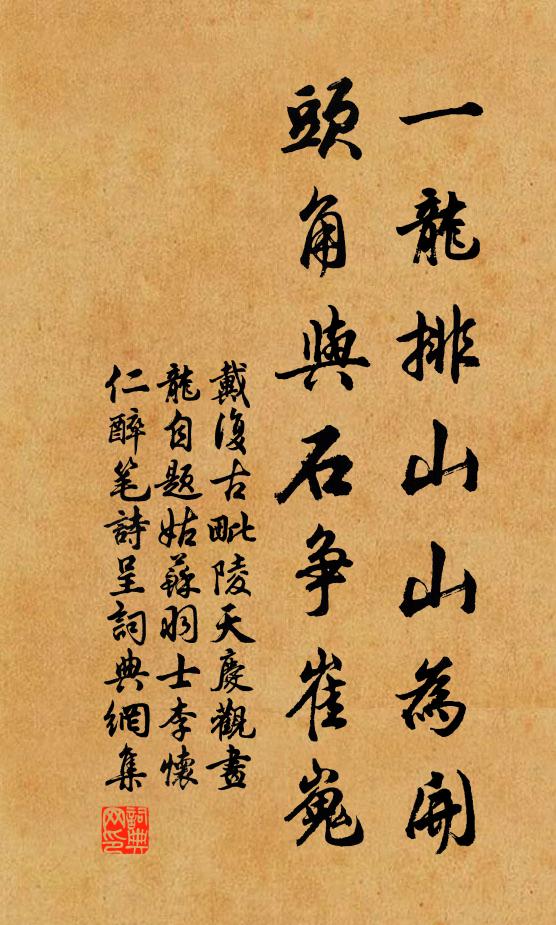 一龍排山山為開
頭角與石争崔嵬
戴復古毗陵天慶觀畫
龍自題姑蘇羽士李懷
仁醉笔詩呈詞典網集
詞典网印